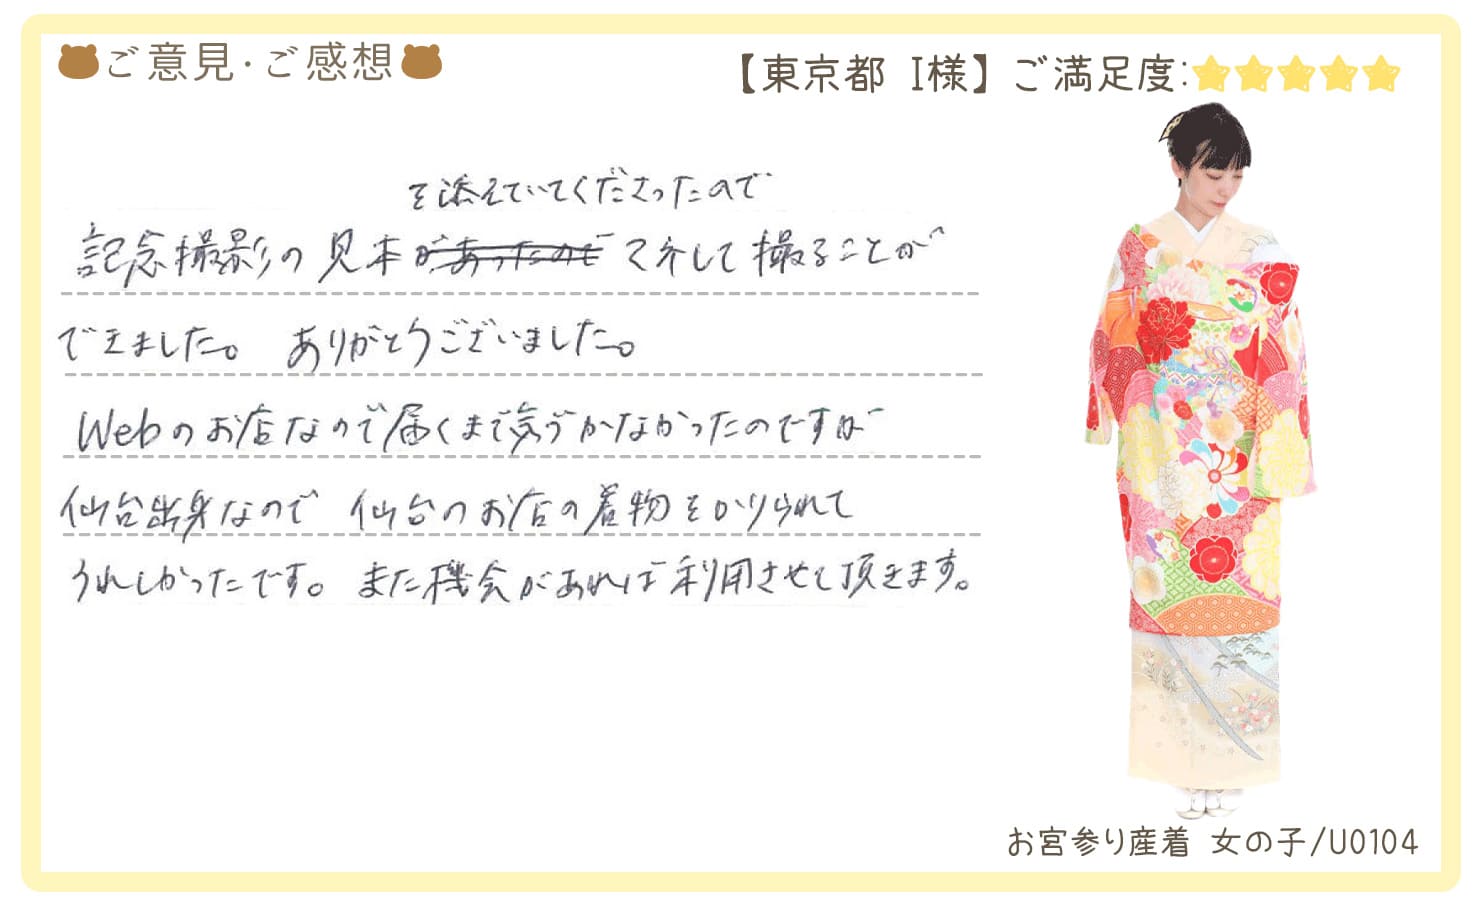 ご意見・ご感想
【東京都 I様】ご満足度:
を添えていてくださったので
記念撮影の見本があったのでマネして撮ることが
できました。 ありがとうございました。
Webのお店なので届くまで気づかなかったのですが
仙台出身なので 仙台のお店の着物をかりられて
うれしかったです。また機会があれば利用させて頂きます。
お宮参り産着 女の子/U0104